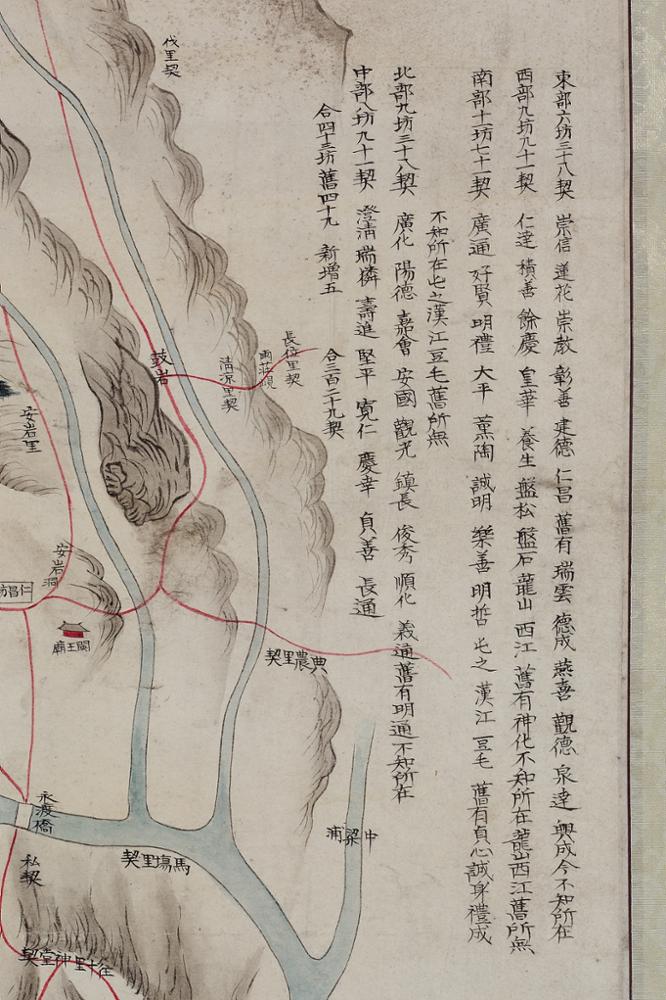 東部六坊三十八契 崇信 蓮花 崇敎 彰善 建德 仁昌 舊有 瑞雲 德成 燕喜 觀德 泉達 興成今不知所在
西部九坊九十一契 仁達 積善 餘慶 皇華 養生 盤松 盤石 龍山 西江 舊有神化不知所在龍山西江舊所無
南部十一坊七十一契 廣通 好賢 明禮 大平 薰陶 誠明 樂善 明哲 屯之 漢江 豆毛 舊有貞心誠身禮成
不知所在屯之漢江豆毛舊所無
北部九坊三十八契 廣化 陽德 嘉會 安國 觀光 鎮長 俊秀 順化 義通舊有明通不知所在
中部八坊九十一契 澄淸 瑞麟 壽進 堅平 寬仁 慶幸 貞善 長通
合四十三坊 舊四十九 新增五 合三百二十九契
伐里契
長位里契
淸凉里契
鼓岩
安岩里
安岩洞
仁昌坊
關王廟
典農里契
永渡橋
中梁浦
馬塲里契
私契
往十里神堂契